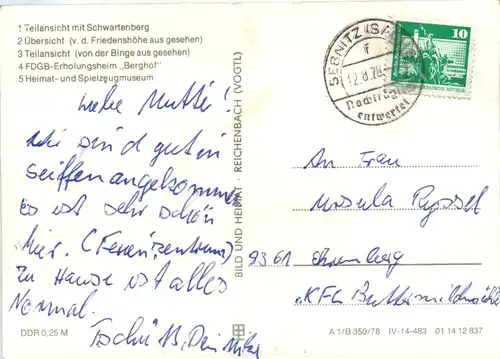 1 Teilansicht mit Schwartenberg
2 Übersicht (v. d. Friedenshöhe aus gesehen)
3 Teilansicht (von der Binge aus gesehen)
4 FDGB-Erholungsheim „Berghof"
5 Heimat- und Spielzeugmuseum
Liebe Mutter!
Wir sind gut in
Seiffen angekommen
Es ist sehr schön
hier. (Ferienzentrum)
Zu Hause ist alles
Normal.
Tschüß, Dein
DDR 0,25 M
BILD UND HEIMAT · REICHENBACH (VOGTL)
SEBNITZ (SA
12.8.78
Nachträgl
entwertet
10
An Frau
Ursula
9361 Ehrenberg
A 1/B 350/78 IV-14-483 01 14 12 837